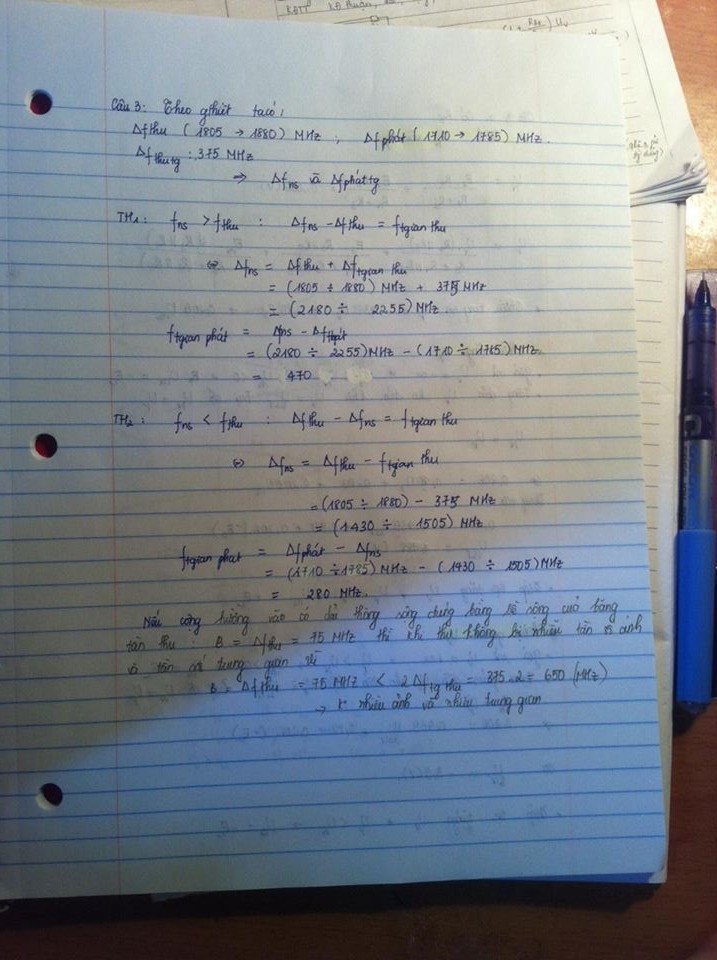 KĐTT KĐ thuần,
Câu 3: Theo gthiết ta có:
Δfthu (1805 → 1880) MHz; Δfphát (1710 → 1785) MHz.
Δfthutg: 375 MHz
⇒ Δfns và Δfphát tg
TH1: fns > fthu : Δfns - Δfthu = ftgian thu
⇔ Δfns = Δfthu + Δftgian thu
= (1805 ÷ 1880) MHz + 375 MHz
= (2180 ÷ 2255) MHz
ftgian phát = Δns - Δfphát
= (2180 ÷ 2255) MHz - (1710 ÷ 1785) MHz
= 470
TH2: fns < fthu : Δfthu - Δfns = ftgian thu
⇔ Δfns = Δfthu - ftgian thu
= (1805 ÷ 1880) - 375 MHz
= (1430 ÷ 1505) MHz
ftgian phat = Δfphát - Δfns
= (1710 ÷ 1785) MHz - (1430 ÷ 1505) MHz
= 280 MHz.
Nếu cộng hưởng vào có dải thông sóng dung bằng bề rộng của băng
tần thu: B = Δfthu = 75 MHz thì khi thu không bị nhiễu tần số ảnh
và tần số trung gian vì
B = Δfthu = 75 MHz < 2Δftg thu = 375.2 = 650 (MHz)
→ k nhiễu ảnh và nhiễu trung gian